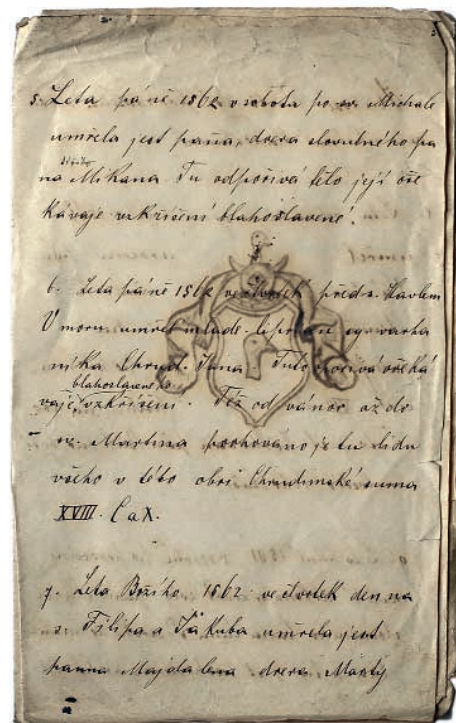 5. Leta páně 1562 v sobota po sv. Michale
umřela jest panna, dcera slovutného pa
na Mikana Tu odpočívá tělo její oče
kávaje vzkříšení blahoslavené.
6. Leta páně 1562 ve čtvrtek před s. Havlem
V moru umřel mláde. syn varha
níka Chrud. Jana. Tuto očeká
vaje blahoslaveného vzkříšení. Též od vánoc až do
sv. Martina pochováno je tu lidu
všeho v této obci Chrudimské suma
XVIII. C a X.
7. Leta Božího 1562 ve čtvrtek den na
s. Filipa a Jakuba umřela jest
panna Majdalena dcera